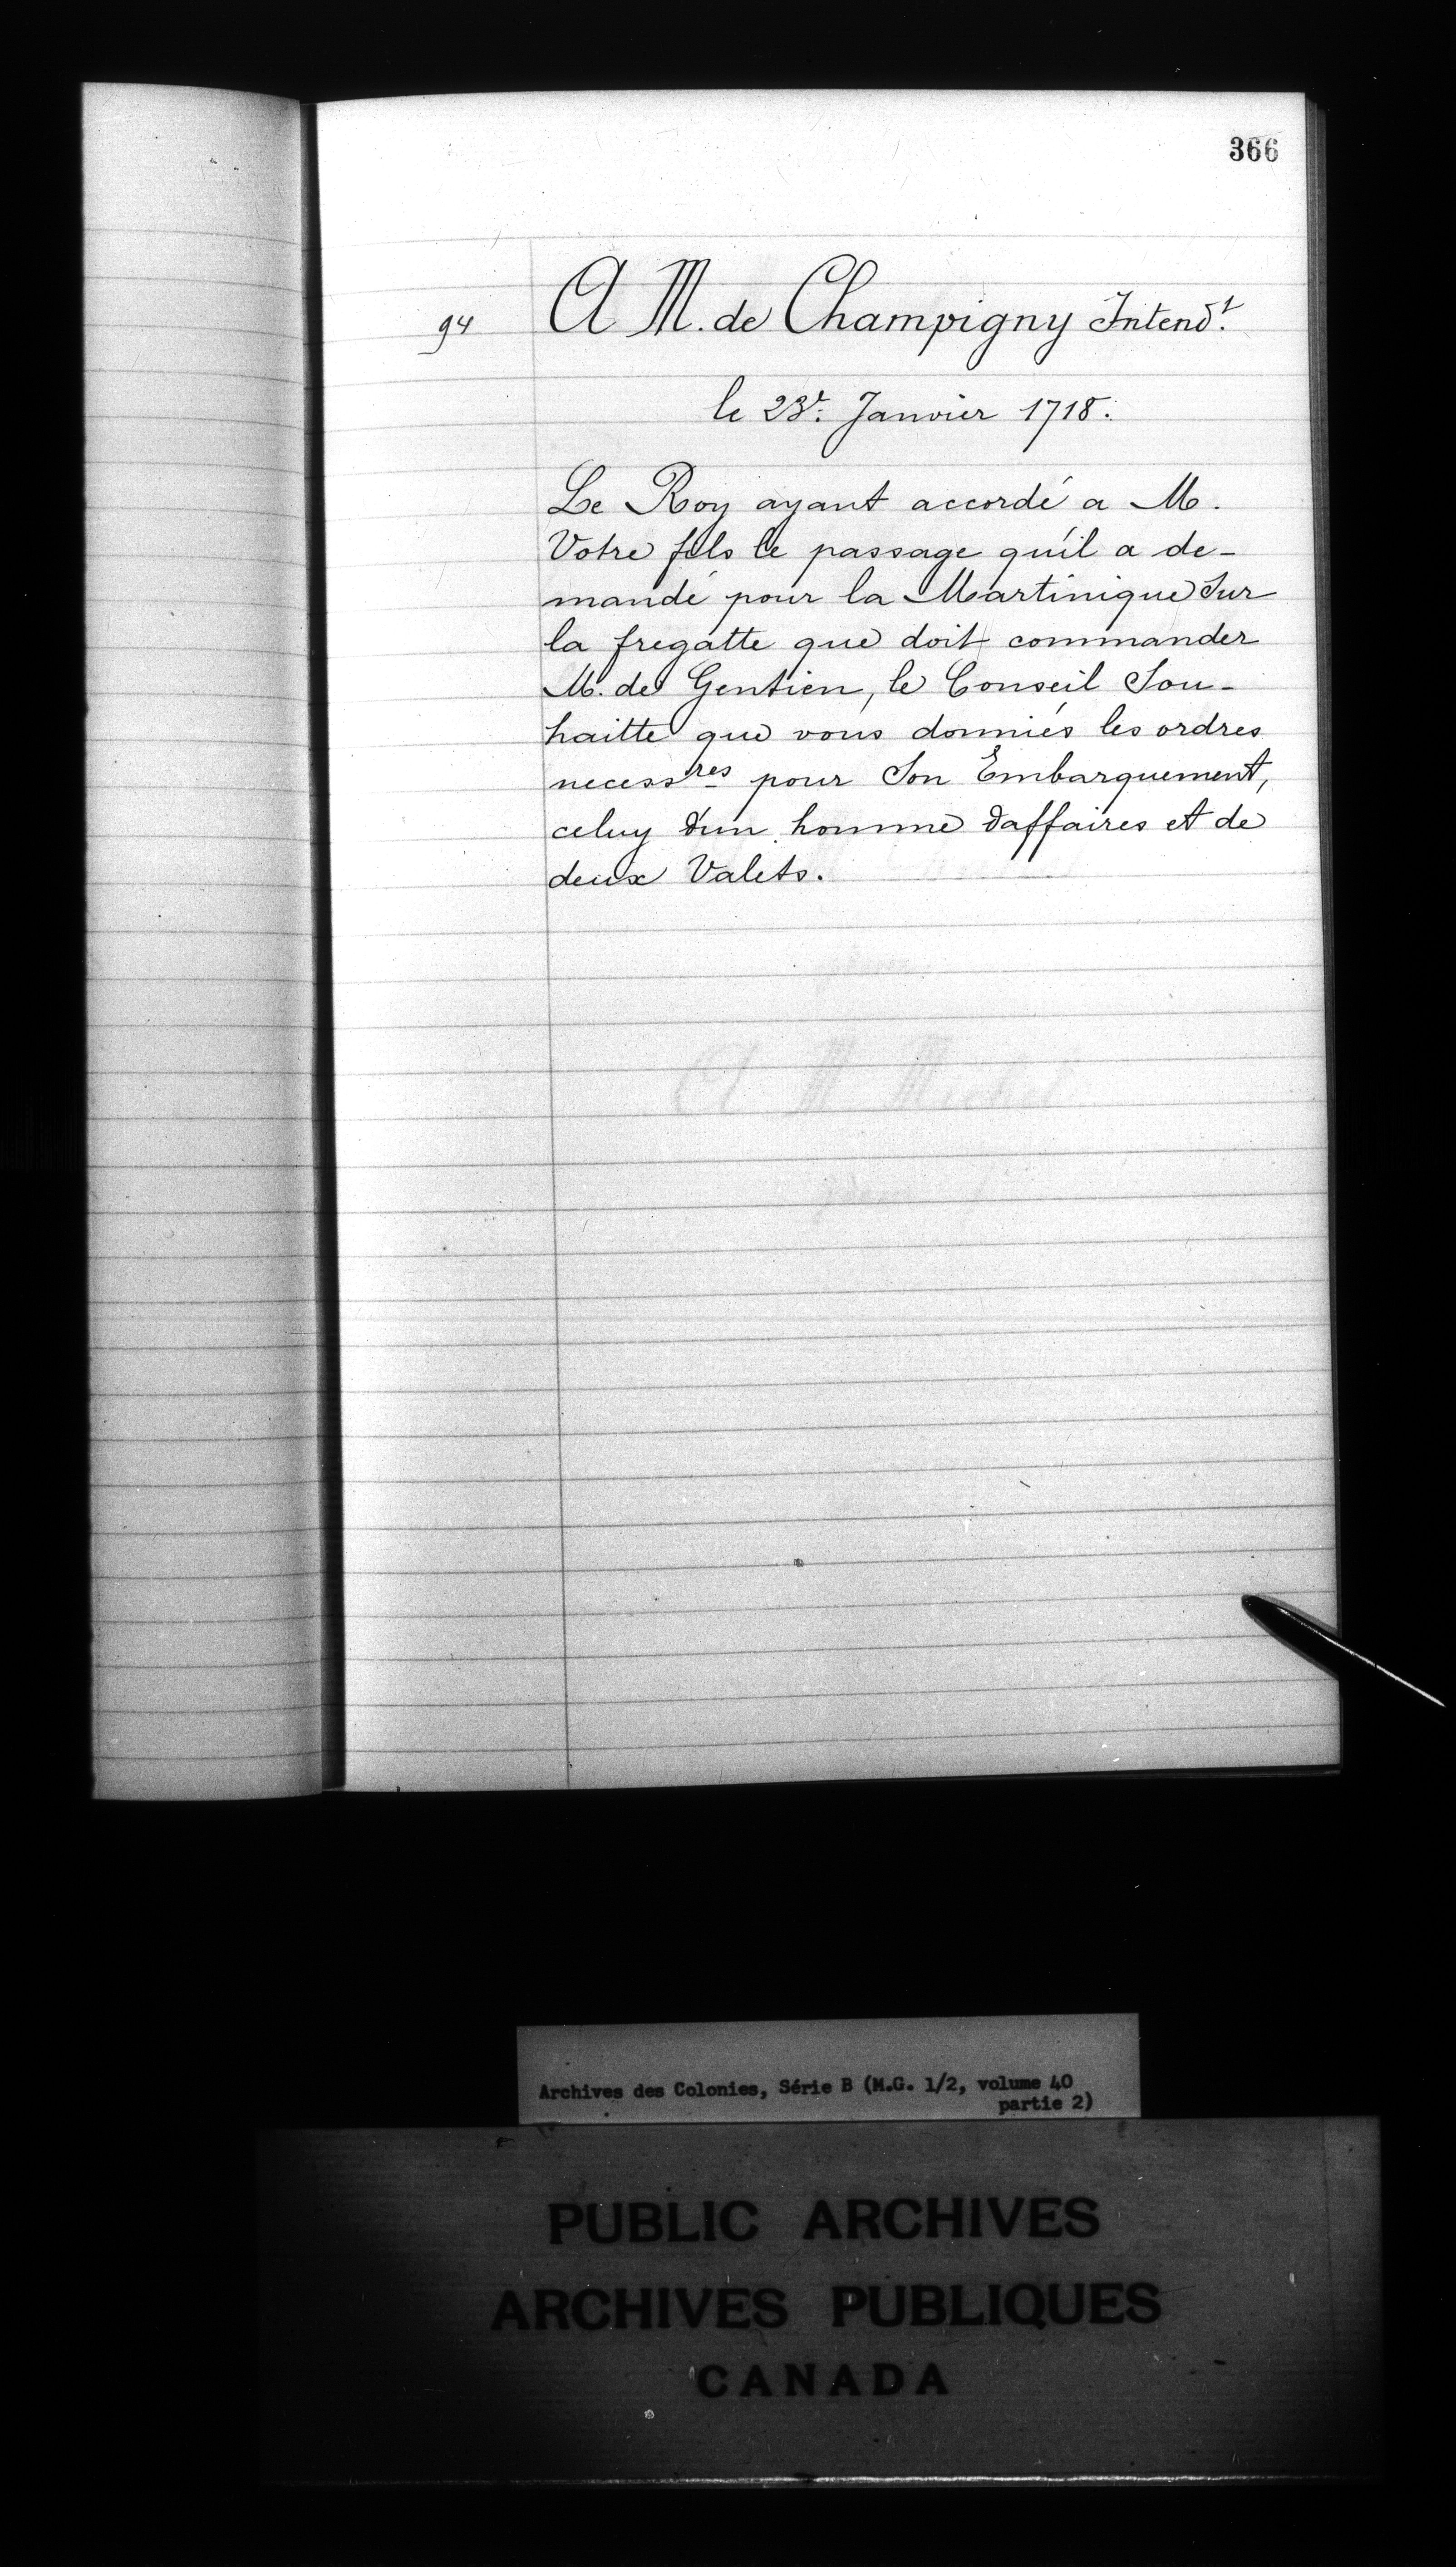 366
94 A M. de Champigny Intend.t
le 23e. Janvier 1718.
Le Roy ayant accordé a M.
Votre fils le passage qu'il a de-
mandé pour la Martinique Sur
la fregatte que doit commander
M. de Gentien, le Conseil Sou-
haitte que vous donniés les ordres
necessres pour Son Embarquement,
celuy d'un homme daffaires et de
deux Valets.
Archives des Colonies, Série B (M.G. 1/2, volume 40
partie 2)
PUBLIC ARCHIVES
ARCHIVES PUBLIQUES
CANADA